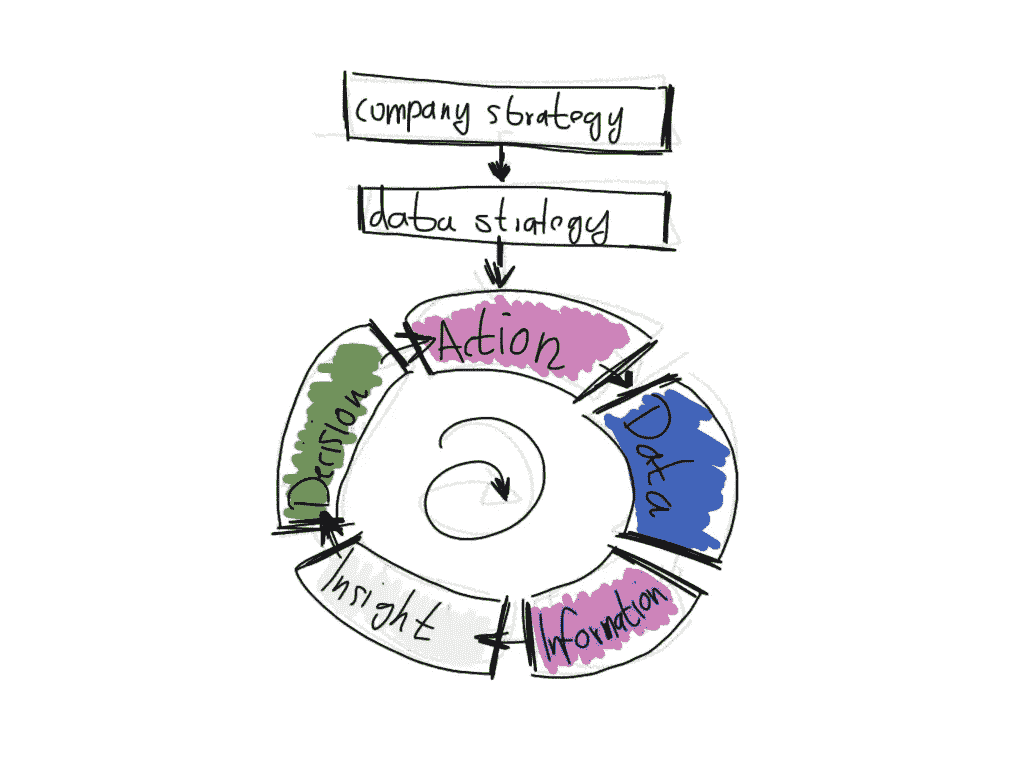 company strategy
data strategy
Action
Data
Information
Insight
Decision